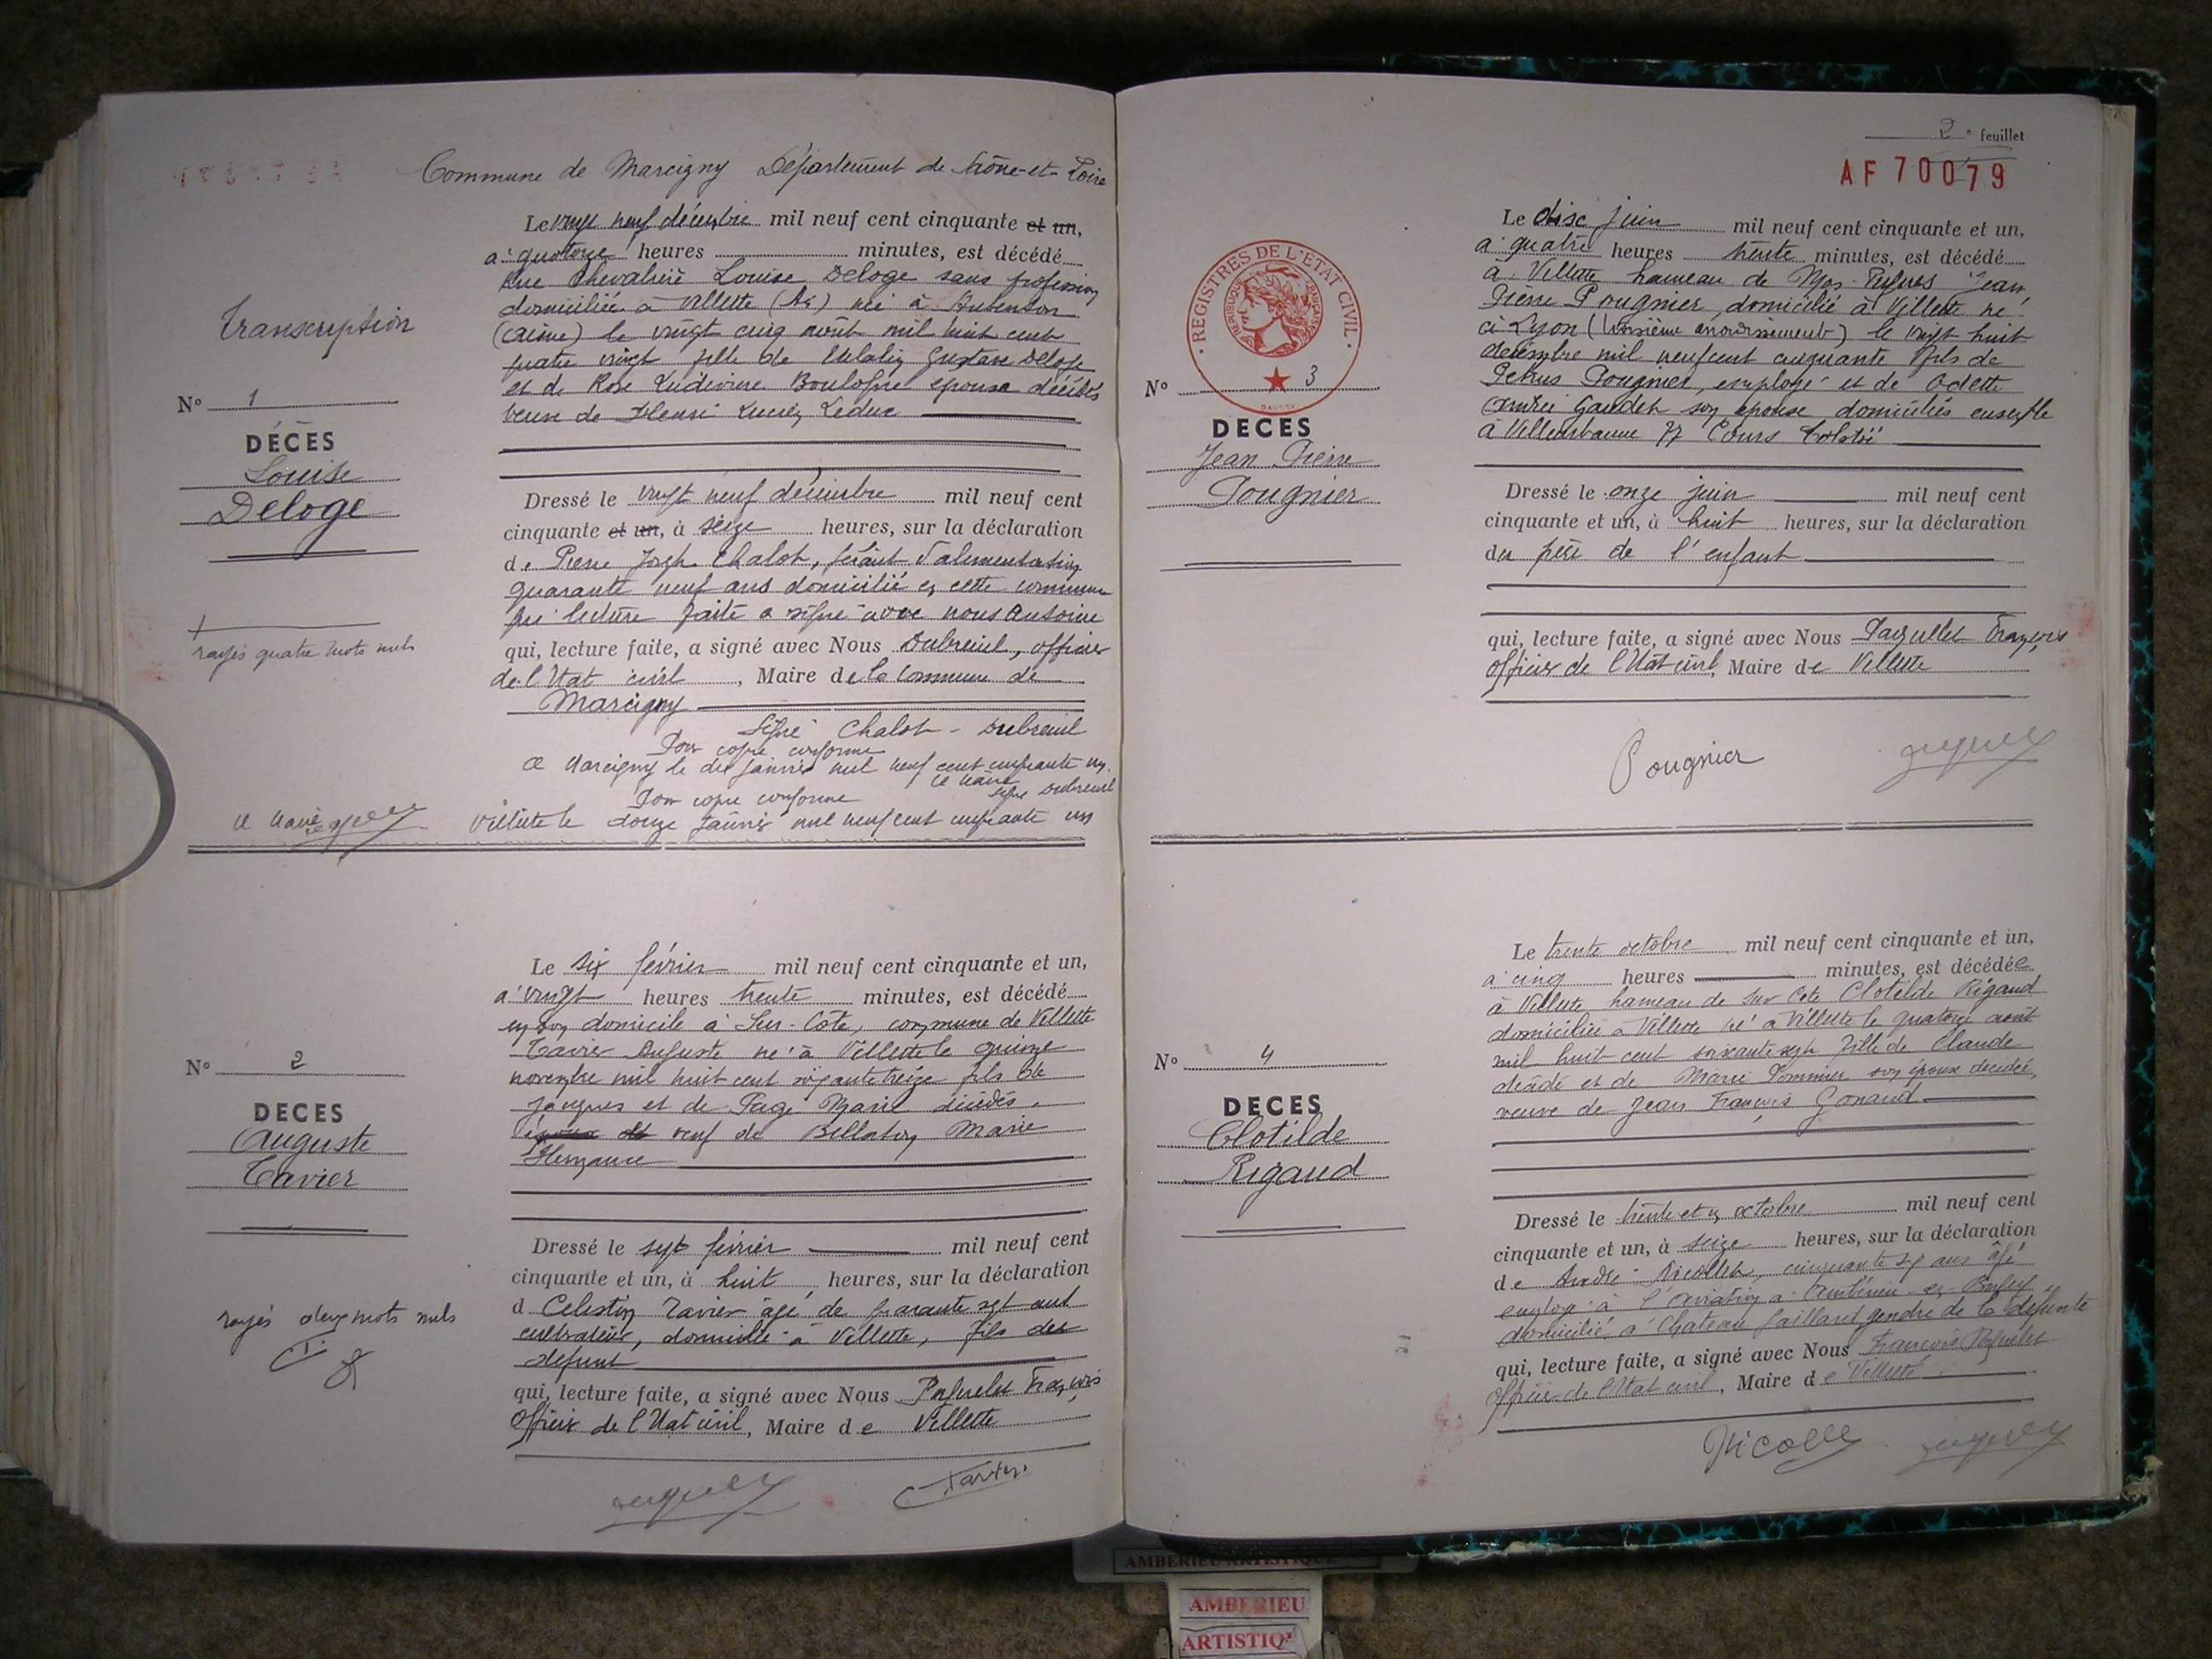 Commune de Marcigny Département de Saône-et-Loire
Transcription
N° 1
DÉCÈS
Louise
Deloge
rayés quatre mots nuls
Le vingt neuf décembre mil neuf cent cinquante et un,
à quatorze heures minutes, est décédé
Rue Chevalière Louise Deloge sans profession
domiciliée à Villette (Ain) née à Aubenton
(Aisne) le vingt cinq août mil huit cent
quatre vingt fille de Gustave Deloge
et de Rose Ludivine Boulogne épouse décédés
veuve de Henri Lucien Leduc
Dressé le vingt neuf décembre mil neuf cent
cinquante et un, à seize heures, sur la déclaration
de Pierre Joseph Chalot, gérant d'alimentation
quarante neuf ans domicilié en cette commune
qui lecture faite a signé avec nous Antoine
qui, lecture faite, a signé avec Nous Dubreuil, officier
de l'Etat civil, Maire de la commune de
Marcigny
Signé Chalot - Dubreuil
Pour copie conforme
A Marcigny le dix janvier mil neuf cent cinquante un.
Le Maire
signé Dubreuil
Pour copie conforme
Villette le douze janvier mil neuf cent cinquante un
Le Maire
N° 2
DECES
Auguste
Tavier
rayés deux mots nuls
Le six février mil neuf cent cinquante et un,
à vingt heures trente minutes, est décédé
en son domicile à Sur-Côte, commune de Villette
Tavier Auguste né à Villette le quinze
novembre mil huit cent soixante treize fils de
Jacques et de Page Marie décédés,
veuf de Bellaton Marie
Hermance
Dressé le sept février mil neuf cent
cinquante et un, à huit heures, sur la déclaration
d Celestin Tavier âgé de quarante sept ans
cultivateur, domicilié à Villette, fils du
défunt
qui, lecture faite, a signé avec Nous Paquelet François
Officier de l'Etat civil, Maire de Villette
Tavier
2e feuillet
AF 70079
REGISTRES DE L'ÉTAT CIVIL
RÉPUBLIQUE FRANÇAISE
N° 3
DECES
Jean Pierre
Pougnier
Le dix juin mil neuf cent cinquante et un,
à quatre heures trente minutes, est décédé
à Villette hameau de Jean
Pierre Pougnier, domicilié à Villette né
à Lyon (troisième arrondissement) le vingt huit
décembre mil neuf cent cinquante fils de
Petrus Pougnier, employé et de Odette
Andrée Gaudet son épouse domiciliés ensemble
à Villeurbanne 77 Cours Tolstoï
Dressé le onze juin mil neuf cent
cinquante et un, à huit heures, sur la déclaration
du père de l'enfant
qui, lecture faite, a signé avec Nous Paquelet François
Officier de l'Etat civil, Maire de Villette
Pougnier
N° 4
DECES
Clotilde
Rigaud
Le trente octobre mil neuf cent cinquante et un,
à cinq heures minutes, est décédée
à Villette hameau de Sur Côte Clotilde Rigaud
domiciliée à Villette né à Villette le quatorze août
mil huit cent soixante sept fille de Claude
décédé et de Marie Pommier son épouse décédée,
veuve de Jean François Gonand
Dressé le trente et un octobre mil neuf cent
cinquante et un, à seize heures, sur la déclaration
de André Nicollet, cinquante sept ans âgé
employé à l'aviation à Ambérieu en Bugey
domicilié à Chateau Gaillard gendre de la défunte
qui, lecture faite, a signé avec Nous François Paquelet
Officier de l'Etat civil, Maire de Villette
Nicollet
AMBERIEU ARTISTIQUE
AMBERIEU
ARTISTIQ